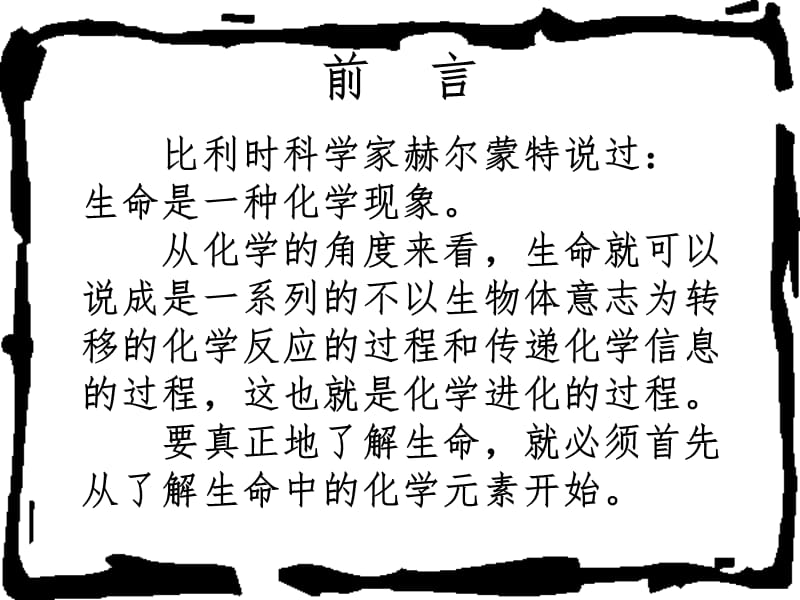 前 言
比利时科学家赫尔蒙特说过：
生命是一种化学现象。
从化学的角度来看，生命就可以
说成是一系列的不以生物体意志为转
移的化学反应的过程和传递化学信息
的过程，这也就是化学进化的过程。
要真正地了解生命，就必须首先
从了解生命中的化学元素开始。